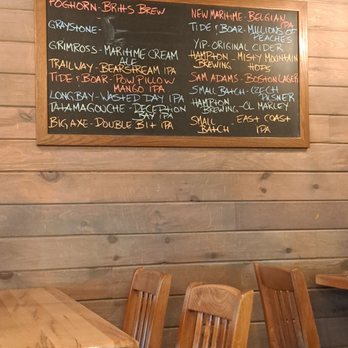 FOGHORN- BRITTS BREW
GRAYSTONE-
GRIMROSS- MARITIME CREAM
ALE
TRAILWAY- BEARSTREAM IPA
TIDE & BOAR- POW PILLOW
MANGO IPA
LONGBAY- WASTED DAY IPA
TATAMAGOUCHE- DECEPTION
BAY IPA
BIG AXE- DOUBLE BIT IPA
NEW MARITIME- BELGIAN
IPA
TIDE & BOAR- MILLIONS OF
PEACHES
YIP- ORIGINAL CIDER
HAMPTON - MISTY MOUNTAIN
BREWING HOPS
SAM ADAMS- BOSTON LAGER
SMALL BATCH- CZECH
PILSNER
HAMPTON
BREWING- CL MARLEY
SMALL EAST COAST
BATCH IPA